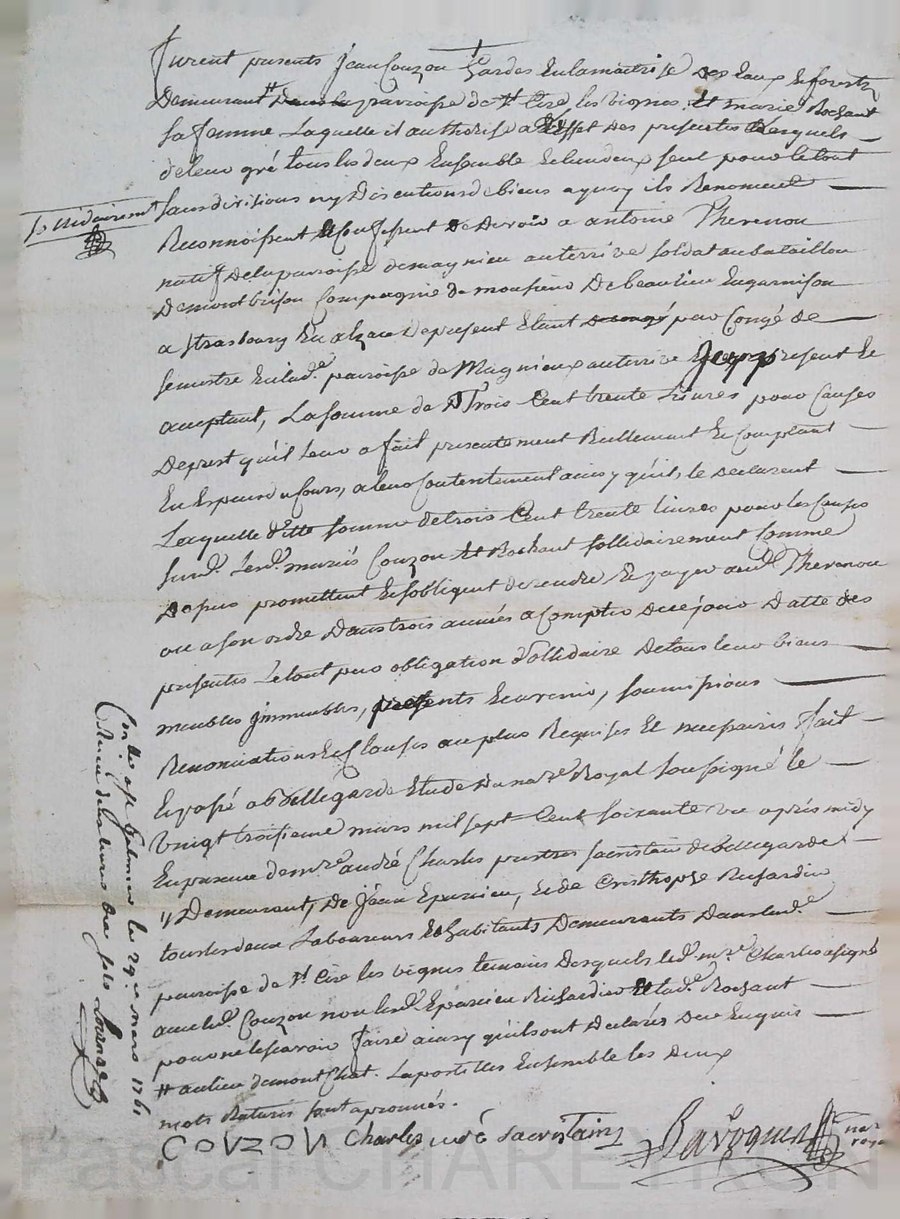 furent presents jean Couzon Gardes En la maitrise des Eaux & forests
Demeurant # dans la parroisse de St Cire les vignes, Et marie Rochant
sa femme Laquelle il authorise a l'Effet des presentes Lesquels
de leur gré tous les deux Ensemble & lun deux seul pour le tout
sans divisions ny Discutions de biens a quoy ils Renoncent
sollidairement
Reconnoissent & Confessent de Devoir a antoine Thevenon
natif de la parroisse de magnieu auterrive soldat au bataillon
de montbrison Compagnie de monsieur De beaulieu En garnison
a strasbourg En alzace de present Etant pour Congé de
semestre En lad.e parroisse de Magnieux auterrive Icy present &
acceptant, La somme de Trois Cent trente Livres pour Causes
de prest qu'il leur a fait presentement Reellement & Comptant
En Espece du Cours, a leur Contentement ainsy qu'ils le declarent
Laquelle ditte somme de trois Cent trente livres pour les Causes
susd. Lesd. mariés Couzon Et Rochant sollidairement Comme
dessus promettent & s'obligent de rendre & payer aud. Thevenon
ou a son ordre Dans trois années a Compter de ce jour Datte des
presentes Le tout par obligation sollidaire De tous leur biens
meubles immeubles, presents & avenir, soumissions
Renonciations & Clauses au plus Requises Et necessaires fait
& passé a Bellegarde Etude du no.re Royal soussigné le
Vingt troisieme mars mil sept Cent soixante un après midy
En presence de m.re andré Charles prestre sacristain de Bellegarde
y Demeurant, De Jean Eparcieu, & de Cristhophe
tous les deux Laboureurs & habitants Demeurants Dans lad.e
parroisse de St Cire les vignes temoins Desquels led. m.re Charles a signé
avec led. Couzon non lesd. Eparcieu Et lad.e Rochant
pour ne le savoir faire ainsy qu'ils ont Declarés De ce Enquis
# au lieu de montChat. L'apostilles Ensemble les Deux
mots Raturés sont aprouvés.
COUZON Charles curé sacristain
not.
royal
Con.lé a st Galmier le 29.e mars 1761